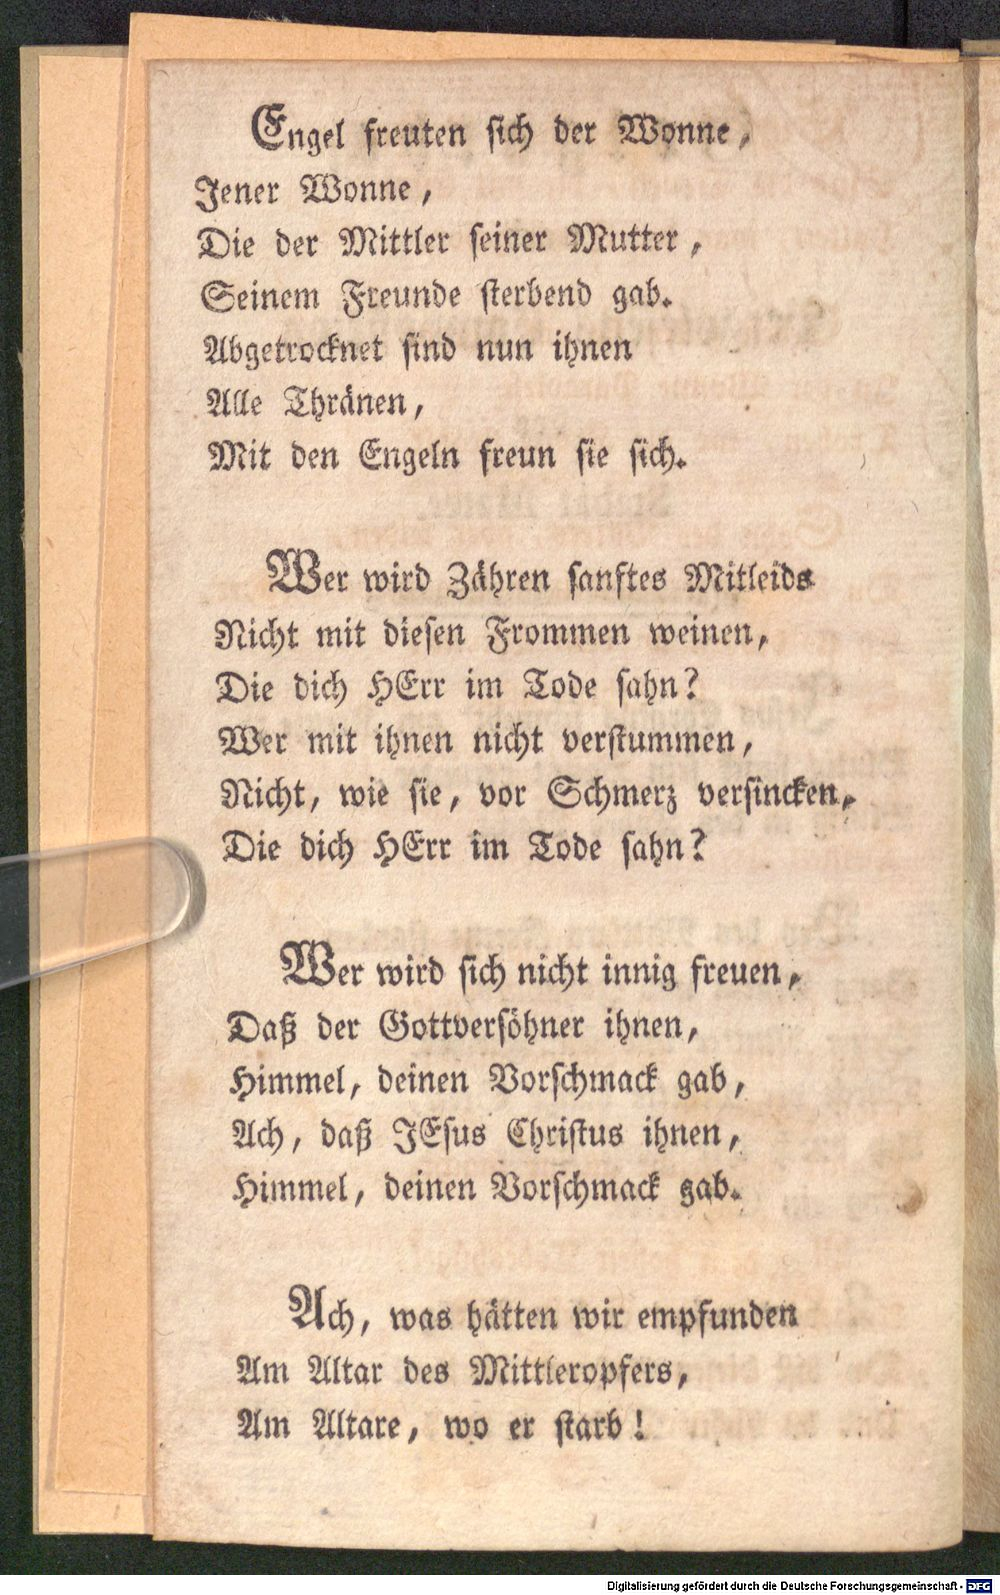 Engel freuten sich der Wonne,
Jener Wonne,
Die der Mittler seiner Mutter,
Seinem Freunde sterbend gab.
Abgetrocknet sind nun ihnen
Alle Thränen,
Mit den Engeln freun sie sich.
Wer wird Zähren sanftes Mitleids
Nicht mit diesen Frommen weinen,
Die dich HErr im Tode sahn?
Wer mit ihnen nicht verstummen,
Nicht, wie sie, vor Schmerz versincken,
Die dich HErr im Tode sahn?
Wer wird sich nicht innig freuen,
Daß der Gottversöhner ihnen,
Himmel, deinen Vorschmack gab,
Ach, daß JEsus Christus ihnen,
Himmel, deinen Vorschmack gab.
Ach, was hätten wir empfunden
Am Altar des Mittleropfers,
Am Altare, wo er starb!
Digitalisierung gefördert durch die Deutsche Forschungsgemeinschaft - DFG